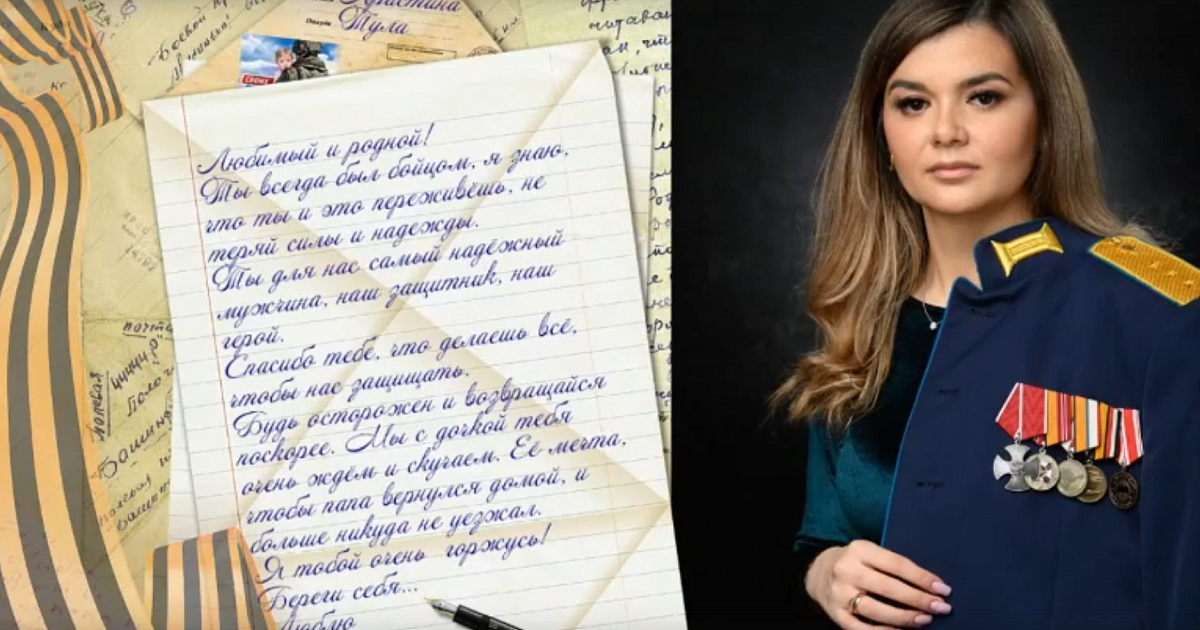 Тула
Любимый и родной!
Ты всегда был бойцом, я знаю,
что ты и это переживёшь, не
теряй силы и надежды.
Ты для нас самый надёжный
мужчина, наш защитник, наш
герой.
Спасибо тебе, что делаешь всё,
чтобы нас защищать.
Будь осторожен и возвращайся
поскорее. Мы с дочкой тебя
очень ждём и скучаем. Её мечта,
чтобы папа вернулся домой, и
больше никуда не уезжал.
Я тобой очень горжусь!
Береги себя...
Люблю